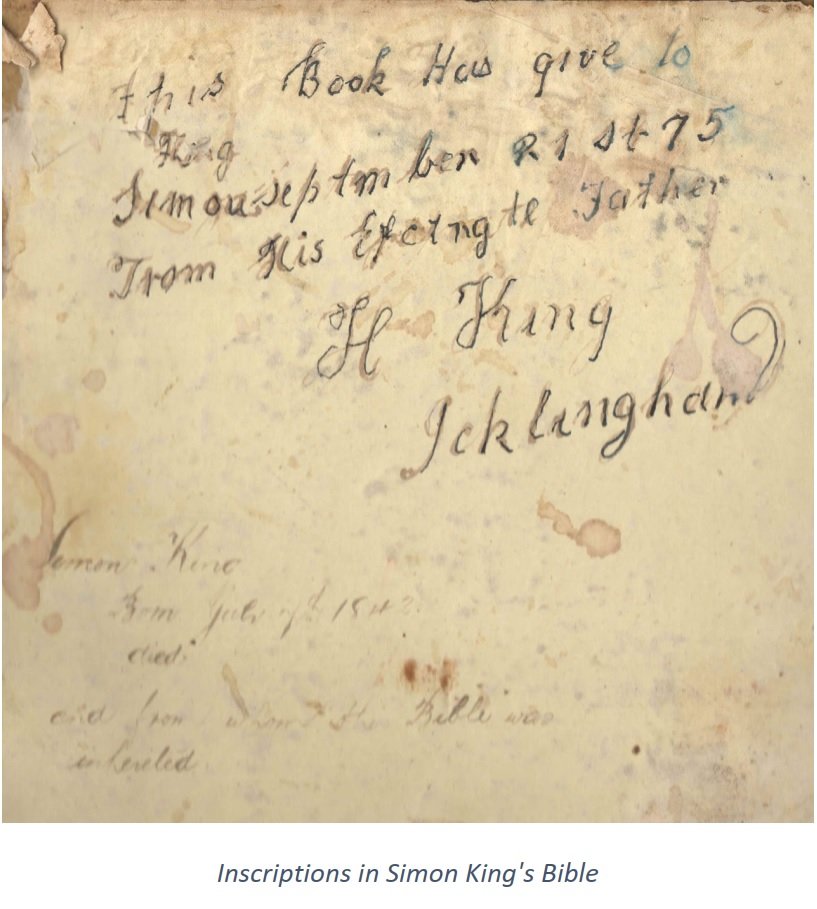 this Book Has give to
King
Simon septmber 21 st 75
From His Efctngte Father
H King
Icklingham
Simon King
Born July 7th 1842
died
and from whom the Bible was
inhereted
Inscriptions in Simon King's Bible